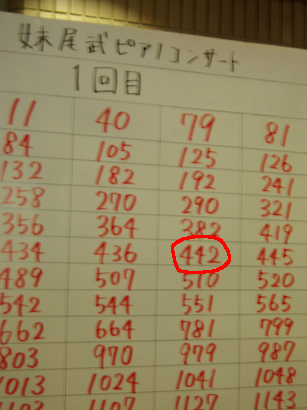 妹尾武ピアノコンサート
1回目
11 40 79 81
84 105 125 126
132 182 192 241
258 270 290 321
356 364 382 419
434 436 442 445
489 507 510 520
542 544 551 565
662 664 781 799
803 970 979 987
1013 1024 1041 1048
1107 1127 1143